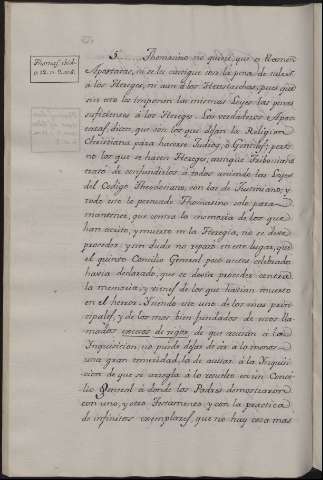 Thomas. ibid.
n. 12. n. 2. et 3.
5. Thomasino no quiere, que à Ramon
Apostatas, ni se le castigue con la pena de
à los Hereges, ni aun à los Heresiarchas, pues que
sin esto les imponen las mismas Leyes las penas
suficientes à los Hereges. Los verdaderos Apos-
tatas, dice, que son los que dejan la Religion
Christiana para hacerse Judios, ò Gentiles; pero
no los que se hacen Hereges, aunque Triboniano
trató de confundirlos à todos uniendo las Leyes
del Codigo Theodosiano, con las de Justiniano; y
todo esto le persuade Thomasino solo para
mantener, que contra la memoria de los que
han muerto en la Heregia, no se deve
proceder: y sin duda no reparó en este lugar, que
el quinto Concilio General, poco antes celebrado
havia declarado, que se devia proceder contra
la memoria, y de los que havian muerto
en el herror. Y siendo este uno de los mas prin-
cipales, y de los mas bien fundados de estos lla-
mados excesos de rigor, de que acusan à la
Inquisicion, no puede dejar de ser à lo menos
una gran temeridad, la de acusar à la Inquisi-
cion de que se arregla à lo resuelto en un Conci-
lio General à donde los Padres demostraron
con uno, y otro Testamento, y con la practica
de infinitos exemplares, que no hay cosa mas